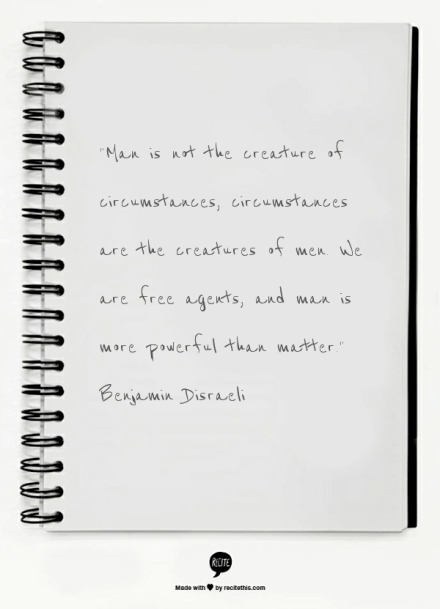 "Man is not the creature of
circumstances, circumstances
are the creatures of men. We
are free agents, and man is
more powerful than matter."
Benjamin Disraeli
RECITE
Made with ♥ by recitethis.com